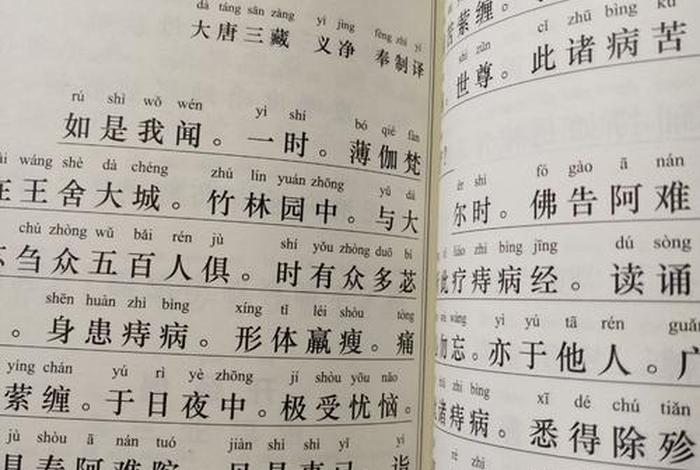 dà táng sān zàng yì jìng fèng zhì yì
大唐三藏 义净 奉制译
rú shì wǒ wén yì shí bó qié fàn
如是我闻。一时。薄伽梵
wáng shè dà chéng zhú lín yuán zhōng yǔ dà
王舍大城。竹林园中。与大
chú zhòng wǔ bǎi rén jù shí yǒu zhòng duō bì
刍众五百人俱。时有众多苾
shēn huàn zhì bìng xíng tǐ léi shòu tòng
。身患痔病。形体羸瘦。痛
yíng chán yú rì yè zhōng jí shòu yōu nǎo
萦缠。于日夜中。极受忧恼。
jù shòu ā nán tuó jiàn shì shì yǐ yì
具寿阿难陀 见是事已 诣
萦缠。
shì zūn cǐ zhū bìng kǔ
世尊。此诸病苦
ěr shí fó gào ā nán
尔时。佛告阿难
liáo zhì bìng jīng dú sòng
此疗痔病经。读诵
wàng yì yú tā rén guǎng
勿忘。亦于他人。广
zhū zhì bìng xī dé chú tiǎn
诸痔病。悉得除殄